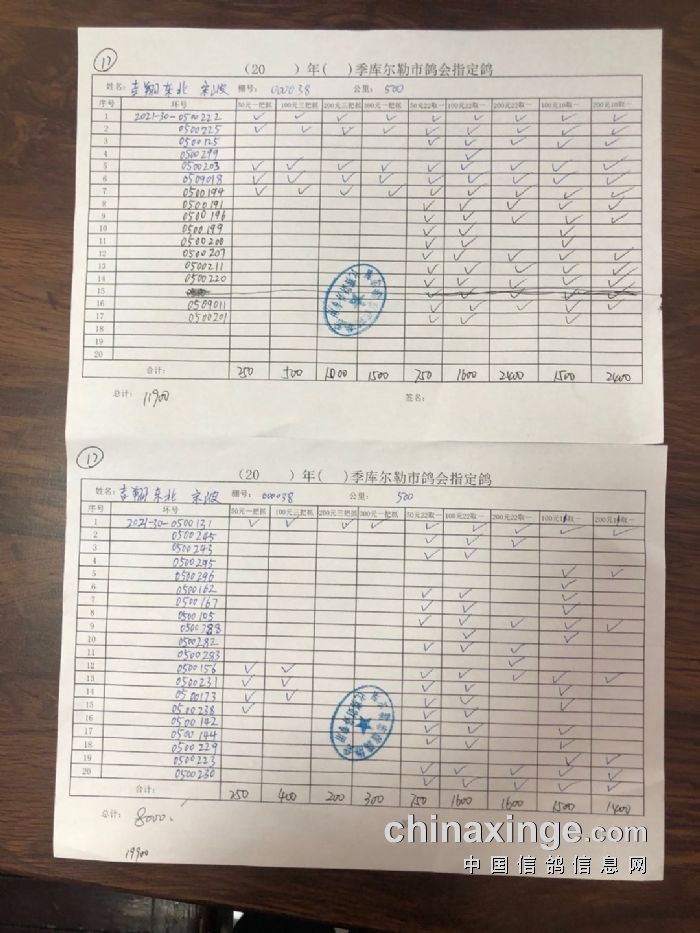 12
(20 )年( )季库尔勒市鸽会指定鸽
姓名: 吉翔东北 宋波 棚号: 000038 公里: 500
序号 环号 50元一把抓 100元三把抓 200元三把抓 300元一把抓 50元22取一 100元22取一 200元22取一 100元10取一 200元10取一
1 2021-30-0500222 ✓ ✓ ✓ ✓ ✓ ✓ ✓ ✓ ✓
2 0500225 ✓ ✓ ✓ ✓ ✓ ✓ ✓ ✓ ✓
3 0500125 ✓ ✓ ✓ ✓ ✓
4 0500299 ✓
5 0500203 ✓ ✓ ✓ ✓ ✓ ✓ ✓ ✓ ✓
6 0509018 ✓ ✓ ✓ ✓ ✓ ✓ ✓ ✓ ✓
7 0500194 ✓ ✓ ✓ ✓ ✓ ✓ ✓ ✓
8 0500191 ✓ ✓ ✓ ✓ ✓
9 0500196 ✓ ✓ ✓ ✓ ✓
10 0500199 ✓ ✓ ✓
11 0500200 ✓ ✓ ✓
12 0500207 ✓ ✓ ✓ ✓ ✓
13 0500211 ✓ ✓ ✓ ✓ ✓
14 0500220 ✓ ✓ ✓ ✓ ✓
15
16 0509011 ✓ ✓ ✓ ✓ ✓
17 0500201 ✓ ✓ ✓
18
19
20
合计: 250 500 1000 1500 750 1600 2400 1500 2400
总计: 11900 签名:
12
(20 )年( )季库尔勒市鸽会指定鸽
姓名: 吉翔东北 宋波 棚号: 000038 公里: 500
序号 环号 50元一把抓 100元三把抓 200元三把抓 300元一把抓 50元22取一 100元22取一 200元22取一 100元1取一 200元1取一
1 2021-30-0500131 ✓ ✓ ✓ ✓ ✓ ✓ ✓ ✓ ✓
2 0500245 ✓ ✓ ✓
3 0500243 ✓ ✓
4 0500295
5 0500296 ✓ ✓
6 0500162 ✓ ✓ ✓
7 0500167 ✓ ✓ ✓
8 0500105 ✓ ✓ ✓
9 0500288 ✓ ✓ ✓ ✓ ✓
10 0500282 ✓ ✓
11 0500283 ✓ ✓ ✓
12 0500156 ✓ ✓ ✓
13 0500231 ✓ ✓ ✓ ✓ ✓ ✓ ✓
14 0500173 ✓ ✓ ✓ ✓ ✓
15 0500238 ✓ ✓ ✓
16 0500142 ✓ ✓
17 0500144 ✓ ✓ ✓
18 0500229 ✓ ✓ ✓
19 0500223 ✓ ✓ ✓
20 0500230 ✓ ✓ ✓ ✓ ✓
合计: 250 400 200 300 750 1600 1600 1500 1400
总计: 8000.
19900
chinaxinge.com
中国信鸽信息网